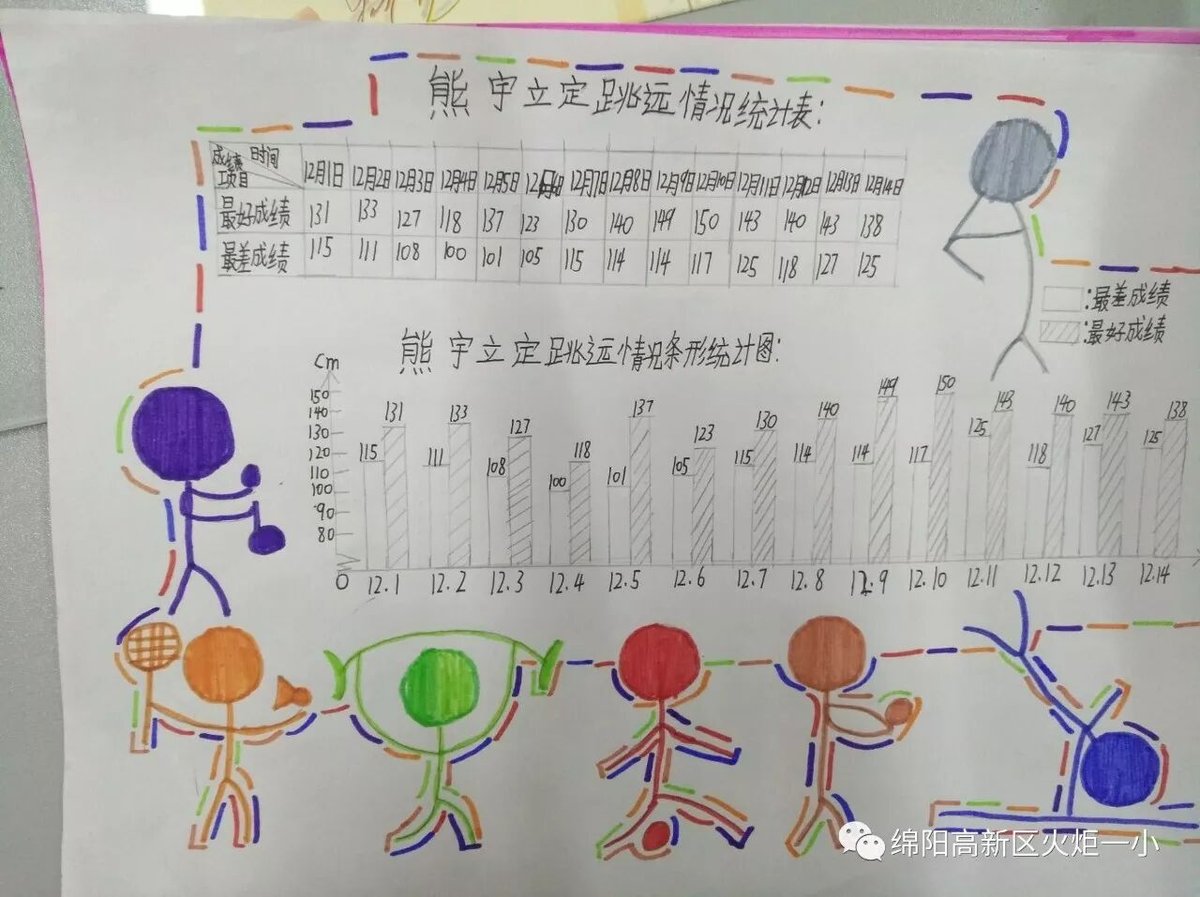 熊宇立定跳远情况统计表:
成绩 时间 项目 12月1日 12月2日 12月3日 12月4日 12月5日 12月6日 12月7日 12月8日 12月9日 12月10日 12月11日 12月12日 12月13日 12月14日
最好成绩 131 133 127 118 137 123 130 140 149 150 143 140 143 138
最差成绩 115 111 108 100 101 105 115 114 114 117 125 118 127 125
:最差成绩
:最好成绩
熊宇立定跳远情况条形统计图:
cm
150
140
130
120
110
100
90
80
0
115 131 111 133 108 127 100 118 101 137 105 123 115 130 114 140 114 149 117 150 125 143 118 140 127 143 125 138
12.1 12.2 12.3 12.4 12.5 12.6 12.7 12.8 12.9 12.10 12.11 12.12 12.13 12.14
绵阳高新区火炬一小